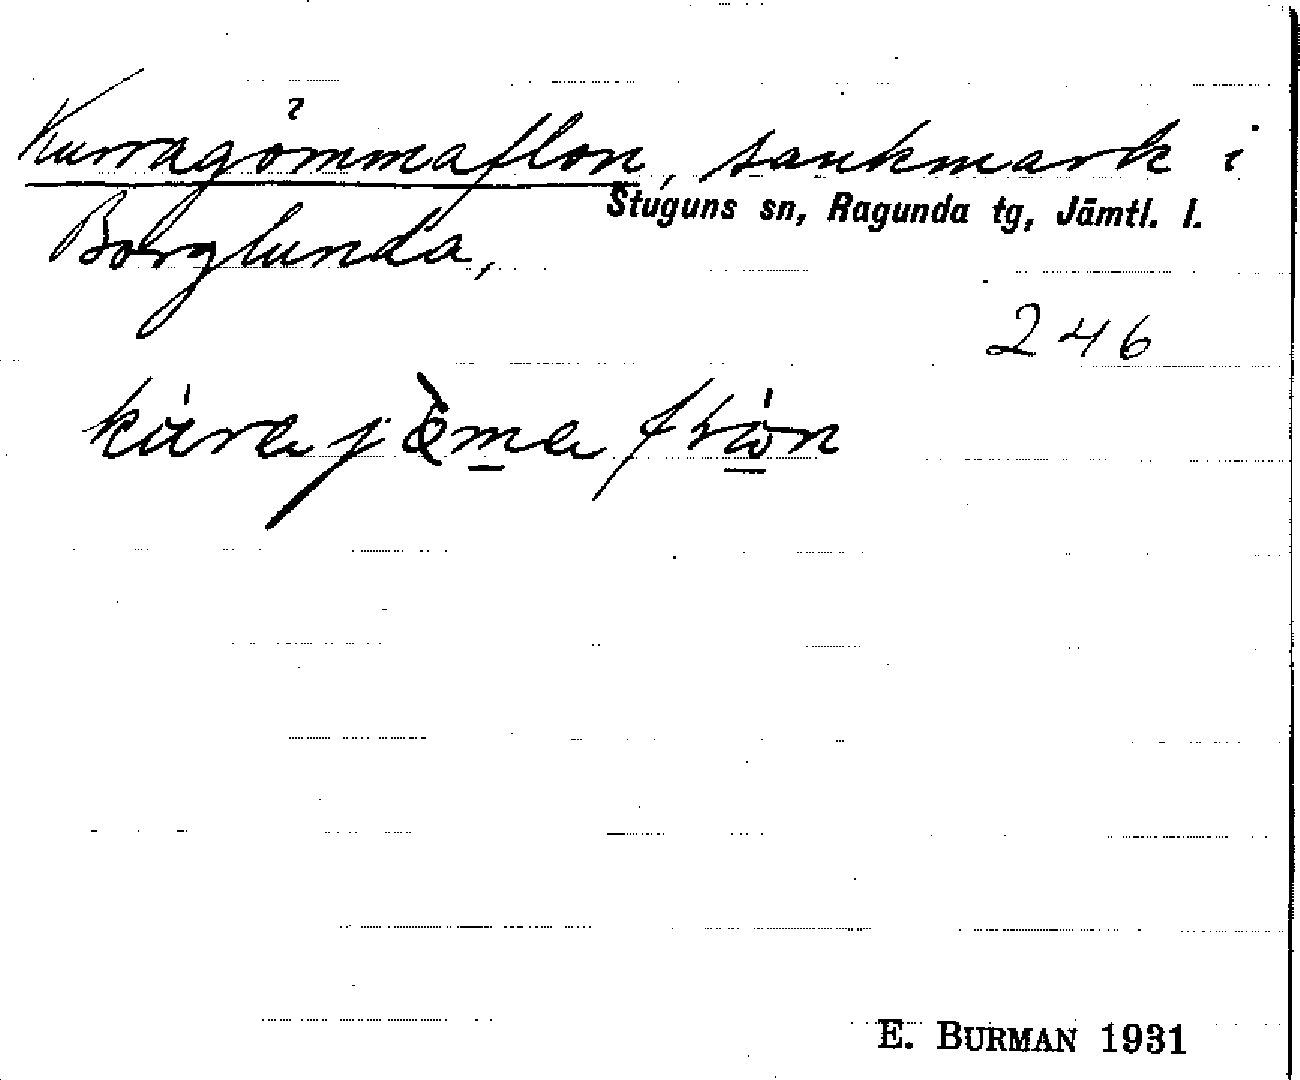 Kurragömmaflon, sankmark i
Stuguns sn, Ragunda tg, Jämtl. l.
Borglunda,
246
E. BURMAN 1931